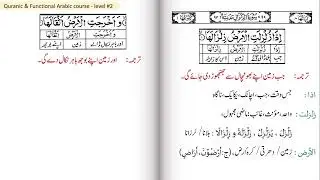 Quranic & Functional Arabic course - level #2
اِذَا زُلْزِلَتِ الْاَرْضُ زِلْزَالَهَا
ترجمہ: جب زمین اپنے بھونچال سے جھنجھوڑ دی جائے گی۔
اِذَا: جس وقت، جب، اچانک، یکایک، ناگاہ
زُلْزِلَتِ: واحد، مؤنث، غائب، ماضی مجہول،
زَلْزَلَ، یُزَلْزِلُ، زَلْزَلَةً و زِلْزَالًا: ہلانا / لرزانا
الْاَرْضُ: زمین / دھرتی / کرہ ارض، (ج: اَرْضُوْنَ، اَرَاضٍ)
وَ اَخْرَجَتِ الْاَرْضُ اَثْقَالَهَا
وَ اَخْرَجَتِ الْاَرْضُ اَثْقَالَهَا
ترجمہ: اور زمین اپنے بوجھ باہر نکال دے گی۔